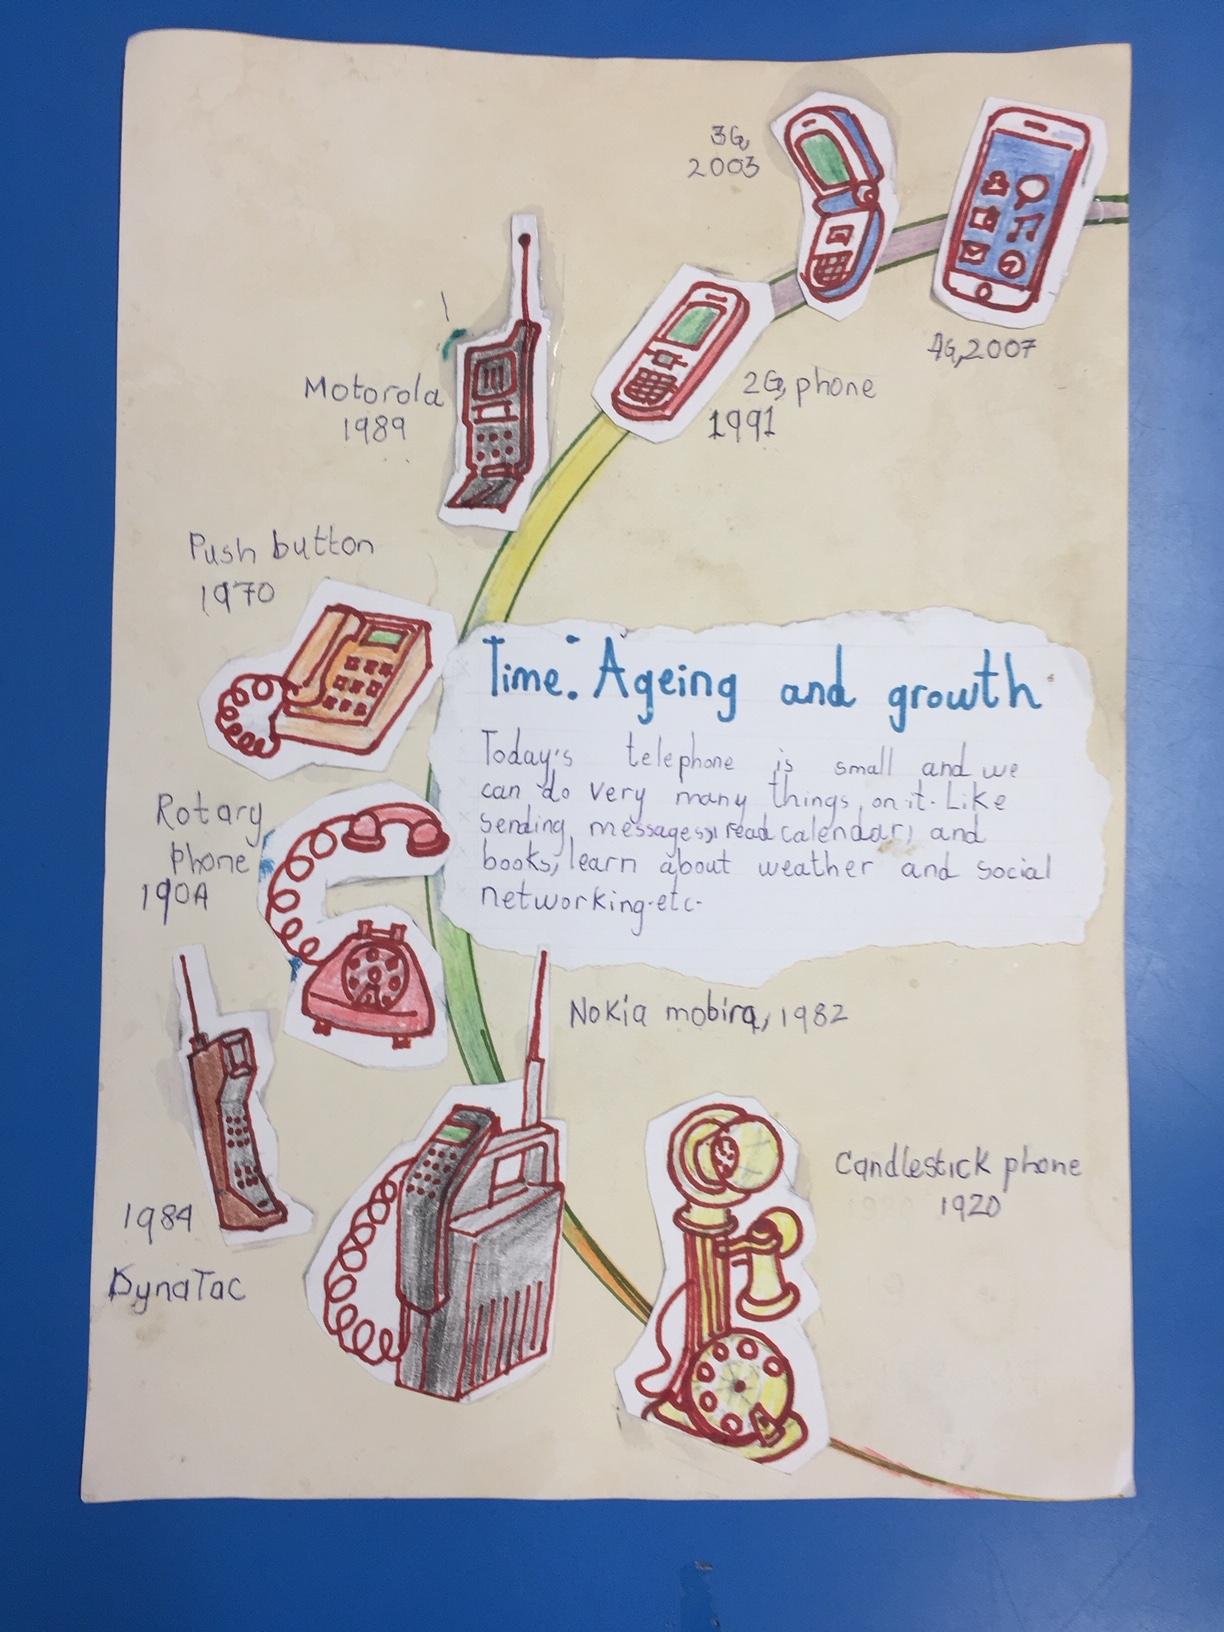 3G,
2003
4G,2007
Motorola
1989
2G, phone
1991
Push button
1970
Time: Ageing and growth
Today's telephone is small and we
can do very many things, on it. Like
sending, messages, read calendar, and
books, learn about weather and social
networking.etc.
Rotary
phone
1904
Nokia mobira, 1982
1984
DynaTac
Candlestick phone
1920